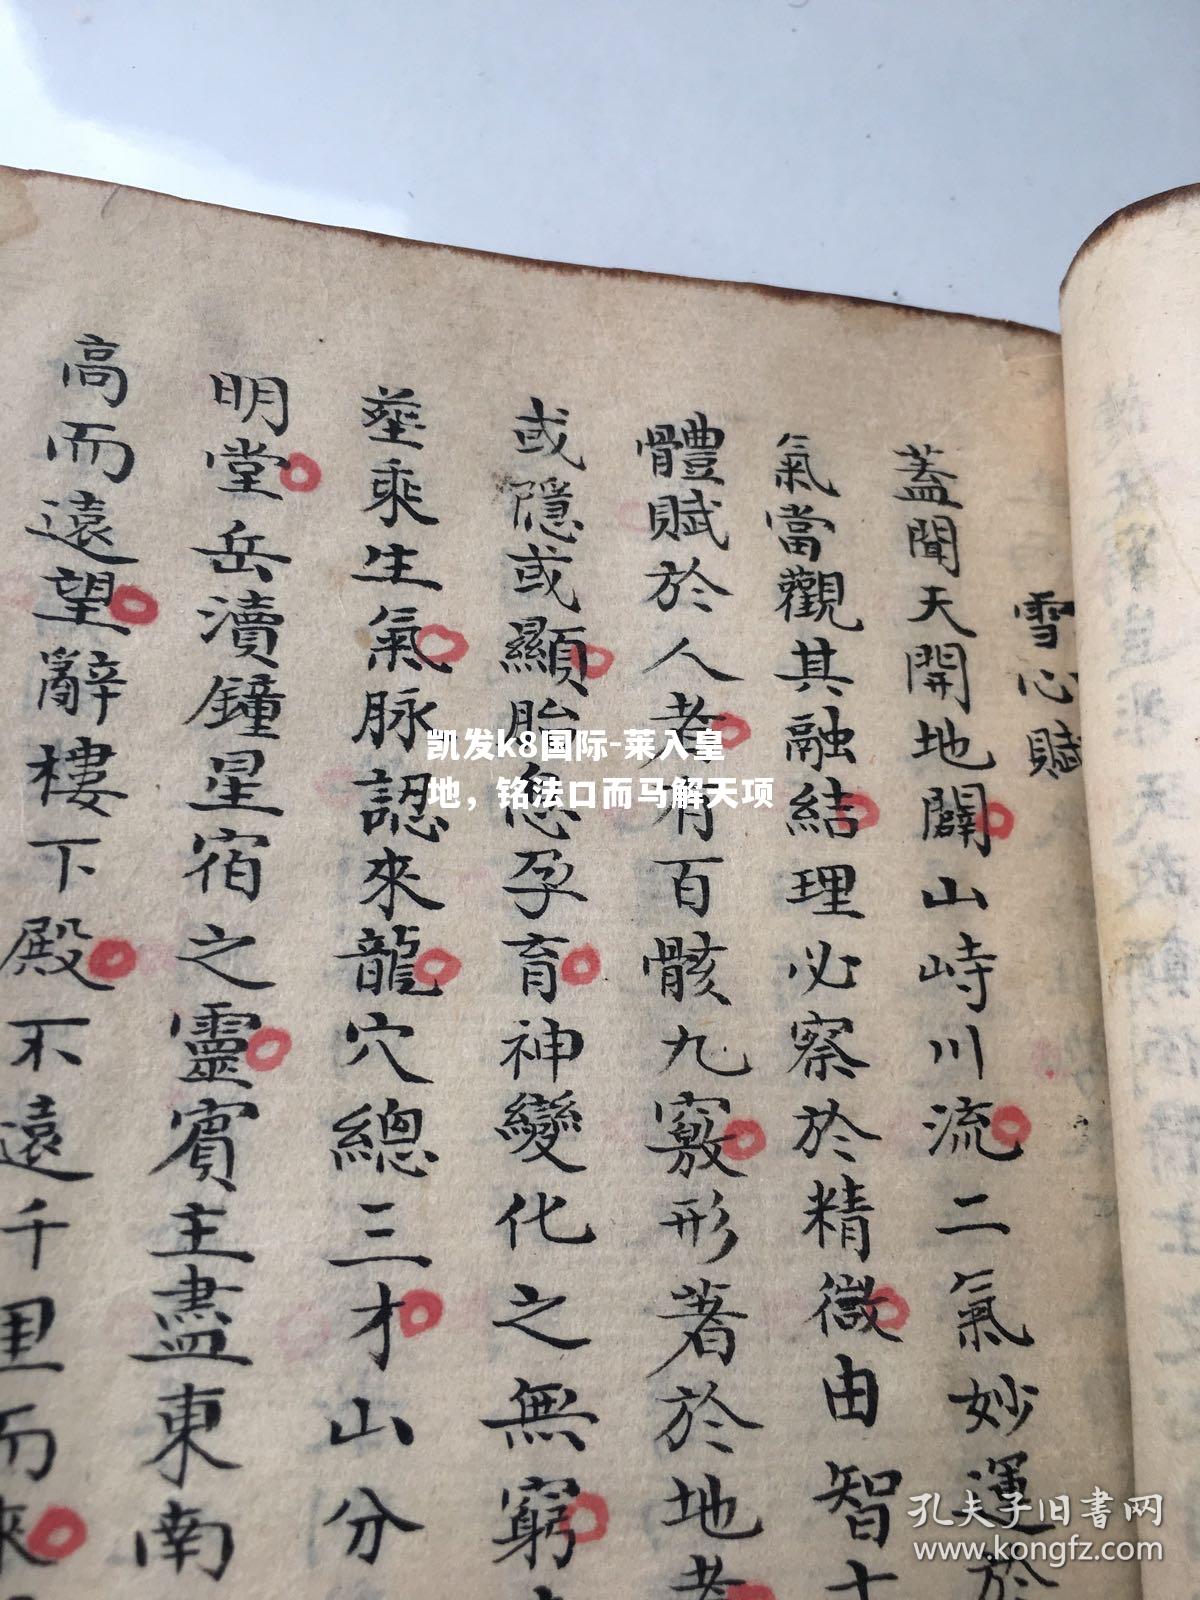 雪心賦
蓋聞天開地闢山峙川流二氣妙運於
氣當觀其融結理必察於精微由智士
體賦於人者有百骸九竅形著於地者
或隱或顯胎息孕育神變化之無窮
葬乘生氣脉認來龍穴總三才山分
明堂岳瀆鐘星宿之靈賓主盡東南
高而遠望辭樓下殿不遠千里而來
凯发k8国际-莱入皇
地，铭法口而马解天项
孔夫子旧书网
www.kongfz.com